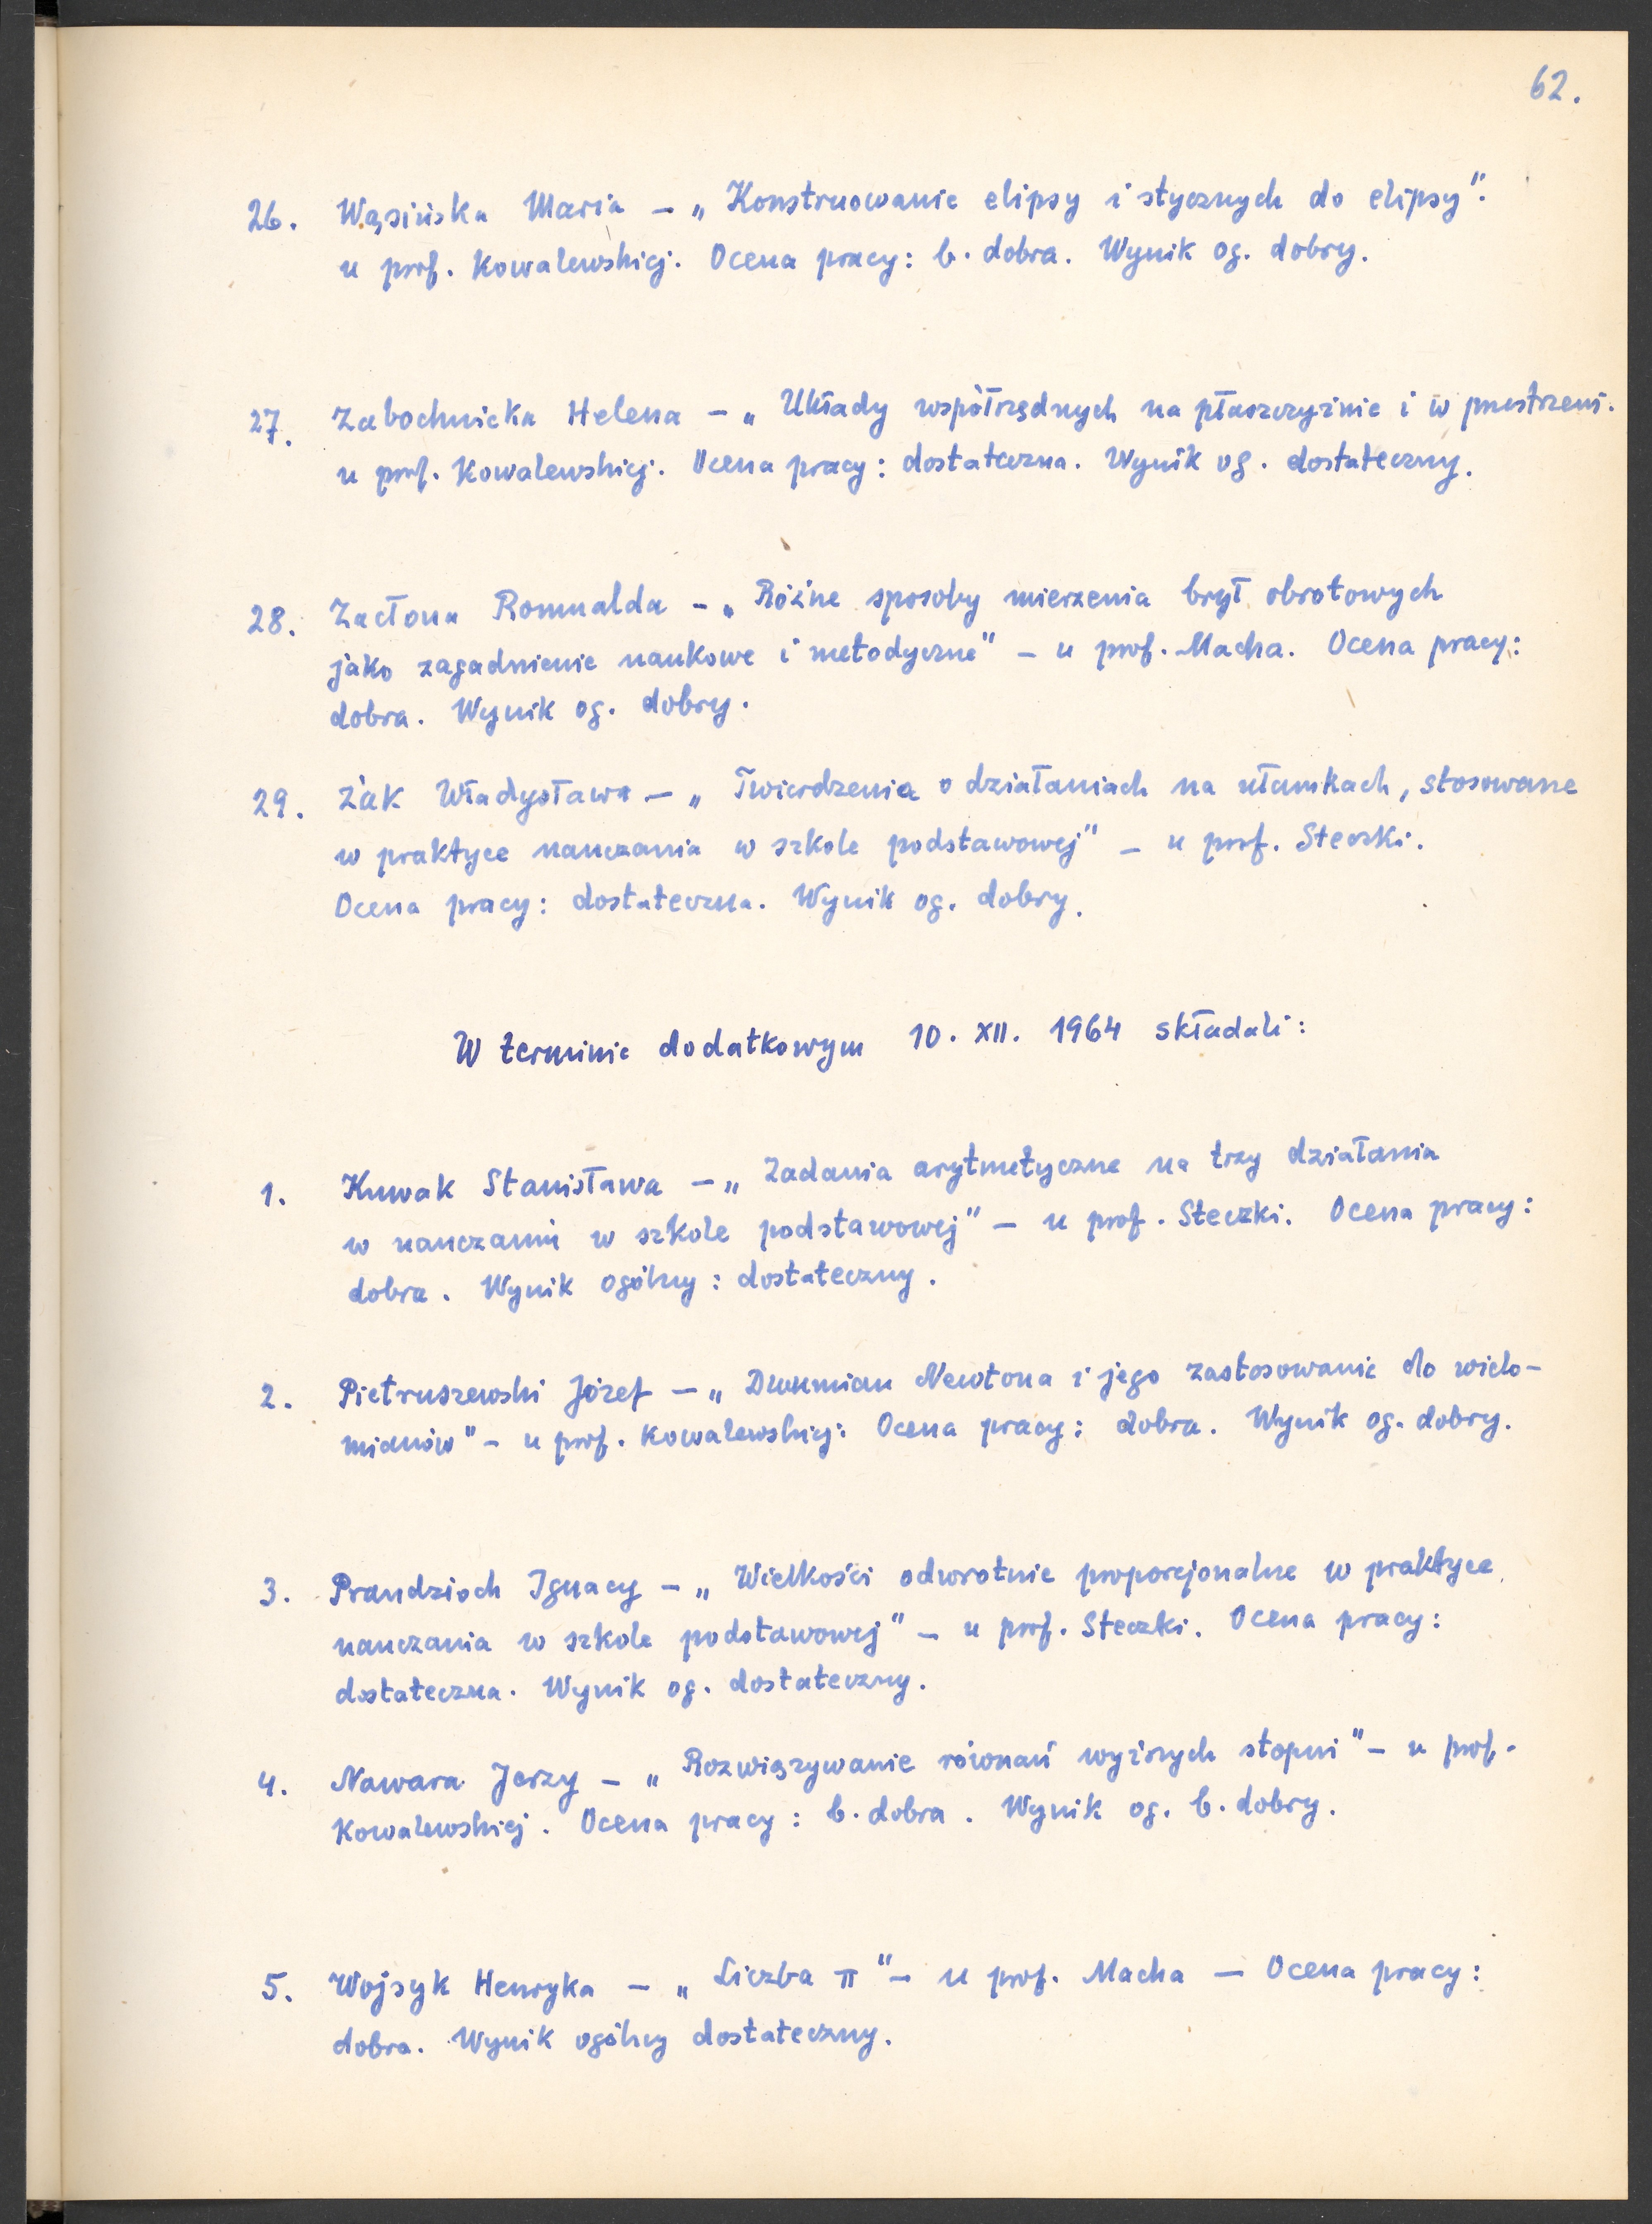 62.
26. Wąsińska Maria – „Konstruowanie elipsy i stycznych do elipsy".
u prof. Kowalewskiej. Ocena pracy: b. dobra. Wynik og. dobry.
27. Zabochnicka Helena – „Układy współrzędnych na płaszczyźnie i w przestrzeni.
u prof. Kowalewskiej. Ocena pracy: dostateczna. Wynik og. dostateczny.
28. Zacłona Romualda – „Różne sposoby mierzenia brył obrotowych
jako zagadnienie naukowe i metodyczne" – u prof. Macha. Ocena pracy:
dobra. Wynik og. dobry.
29. Żak Władysława – „Twierdzenia o działaniach na ułamkach, stosowane
w praktyce nauczania w szkole podstawowej" – u prof. Steczki.
Ocena pracy: dostateczna. Wynik og. dobry.
W terminie dodatkowym 10. XII. 1964 składali:
1. Knwak Stanisława – „Zadania arytmetyczne na trzy działania
w nauczaniu w szkole podstawowej" – u prof. Steczki. Ocena pracy:
dobra. Wynik ogólny: dostateczny.
2. Pietruszewski Józef – „Dwumian Newtona i jego zastosowanie do wielo-
mianów" – u prof. Kowalewskiej: Ocena pracy: dobra. Wynik og. dobry.
3. Prandzioch Ignacy – „Wielkości odwrotnie proporcjonalne w praktyce
nauczania w szkole podstawowej" – u prof. Steczki. Ocena pracy:
dostateczna. Wynik og. dostateczny.
4. Nawara Jerzy – „Rozwiązywanie równań wyższych stopni" – u prof.
Kowalewskiej. Ocena pracy: b. dobra. Wynik og. b. dobry.
5. Wojsyk Henryka – „Liczba π" – u prof. Macha – Ocena pracy:
dobra. Wynik ogólny dostateczny.